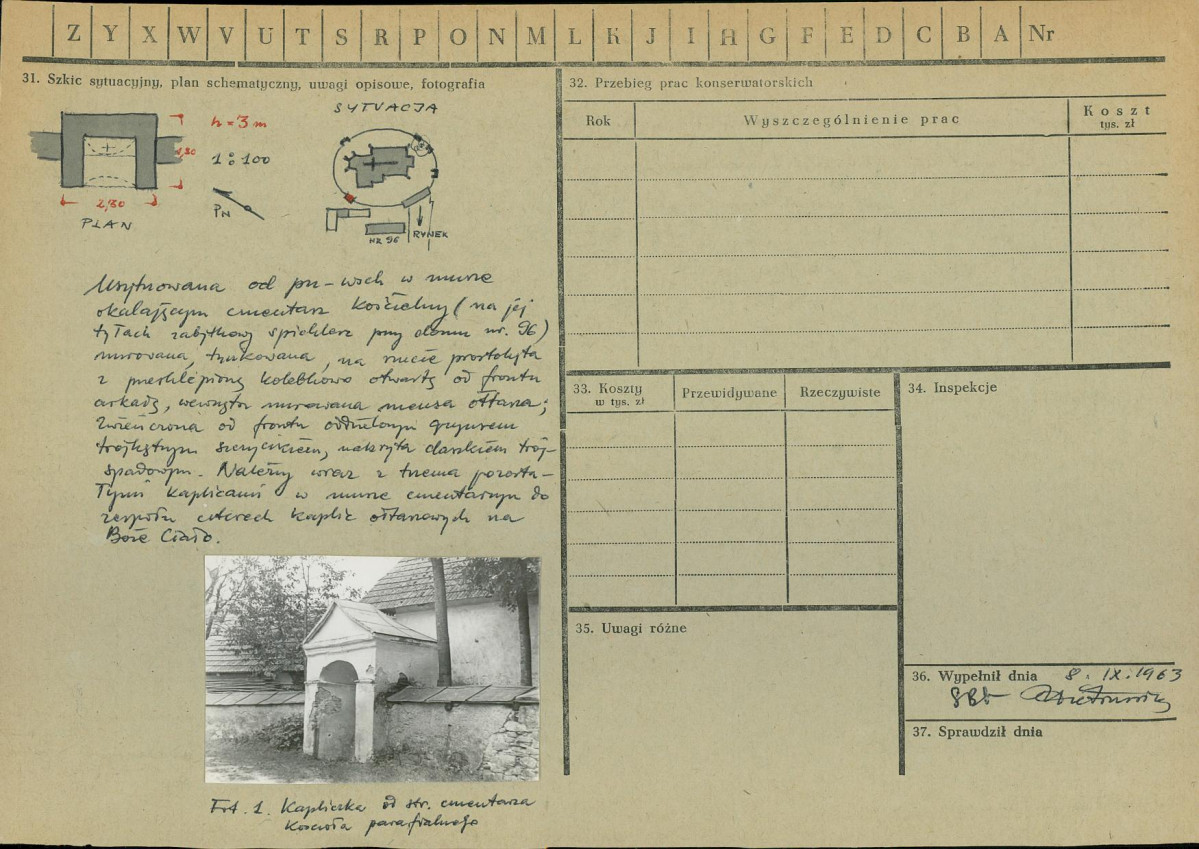 Z Y X W V U T S R P O N M L K J I H G F E D C B A Nr
31. Szkic sytuacyjny, plan schematyczny, uwagi opisowe, fotografia
SYTUACJA
h = 3 m
1,80
1 : 100
2,80
PN
PLAN
NR 96
RYNEK
Usytuowana od pn-wsch w murze
okalającym cmentarz kościelny (na jej
tyłach zabytkowy spichlerz przy domu nr. 96)
murowana, tynkowana, na rzucie prostokąta
z przesklepioną kolebkowo otwartą od frontu
arkadą, wewnątrz murowana mensa ołtarza;
Zwieńczona od frontu oddzielonym gzymsem
trójkątnym szczycikiem, nakryta daszkiem trój-
spadowym. Należy wraz z trzema pozosta-
łymi kaplicami w murze cmentarnym do
zespołu czterech kaplic ołtarzowych na
Boże Ciało.
Fot. 1. Kapliczka od str. cmentarza
kościoła parafialnego
32. Przebieg prac konserwatorskich
Rok
Wyszczególnienie prac
Koszt
tys. zł
33. Koszty
w tys. zł
Przewidywane
Rzeczywiste
34. Inspekcje
35. Uwagi różne
36. Wypełnił dnia 8. IX. 1963
37. Sprawdził dnia